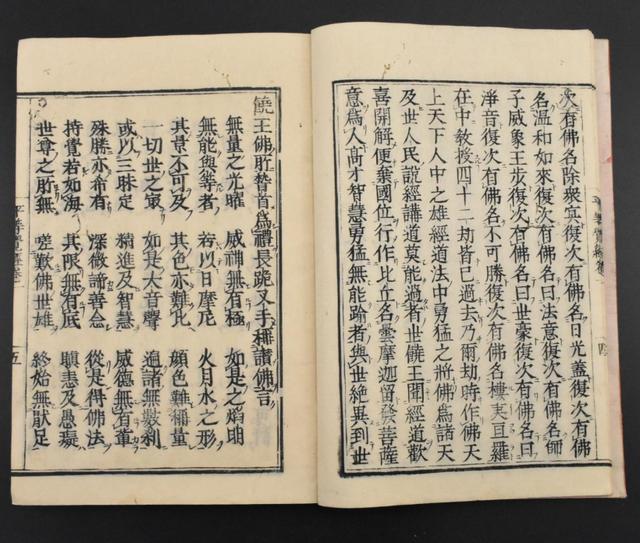 次有佛名除衆冥復次有佛名日光蓋復次有佛
名温和如來復次有佛名曰法意復次有佛名師
子威象王步復次有佛名曰世豪復次有佛名曰
淨音復次有佛名不可勝復次有佛名樓夷亘羅
在中教授四十二劫皆已過去乃爾劫時作佛天
上天下人中之雄經道法中勇猛之將佛爲諸天
及世人民說經講道莫能過者世饒王聞經道歡
喜開解便棄國位行作比丘名曇摩迦留發菩薩
意爲人高才智慧勇猛無能踰者與世絶異到世
饒王佛所稽首爲禮長跪叉手稱讚佛言
無量之光曜 威神無有極 如是之焔明
無能與等者 若以日摩尼 火月水之形
其章不可及 其色亦難比 顔色難稱量
一切世之最 如是大音聲 遍諸無數刹
或以三昧定 精進及智慧 威德無有輩
殊勝亦希有 深微諦善念 從是得佛法
持覺若如海 其限無有底 瞋恚及愚癡
世尊之所無 嗟歎佛世雄 終始無厭足
平等覺經卷一 五